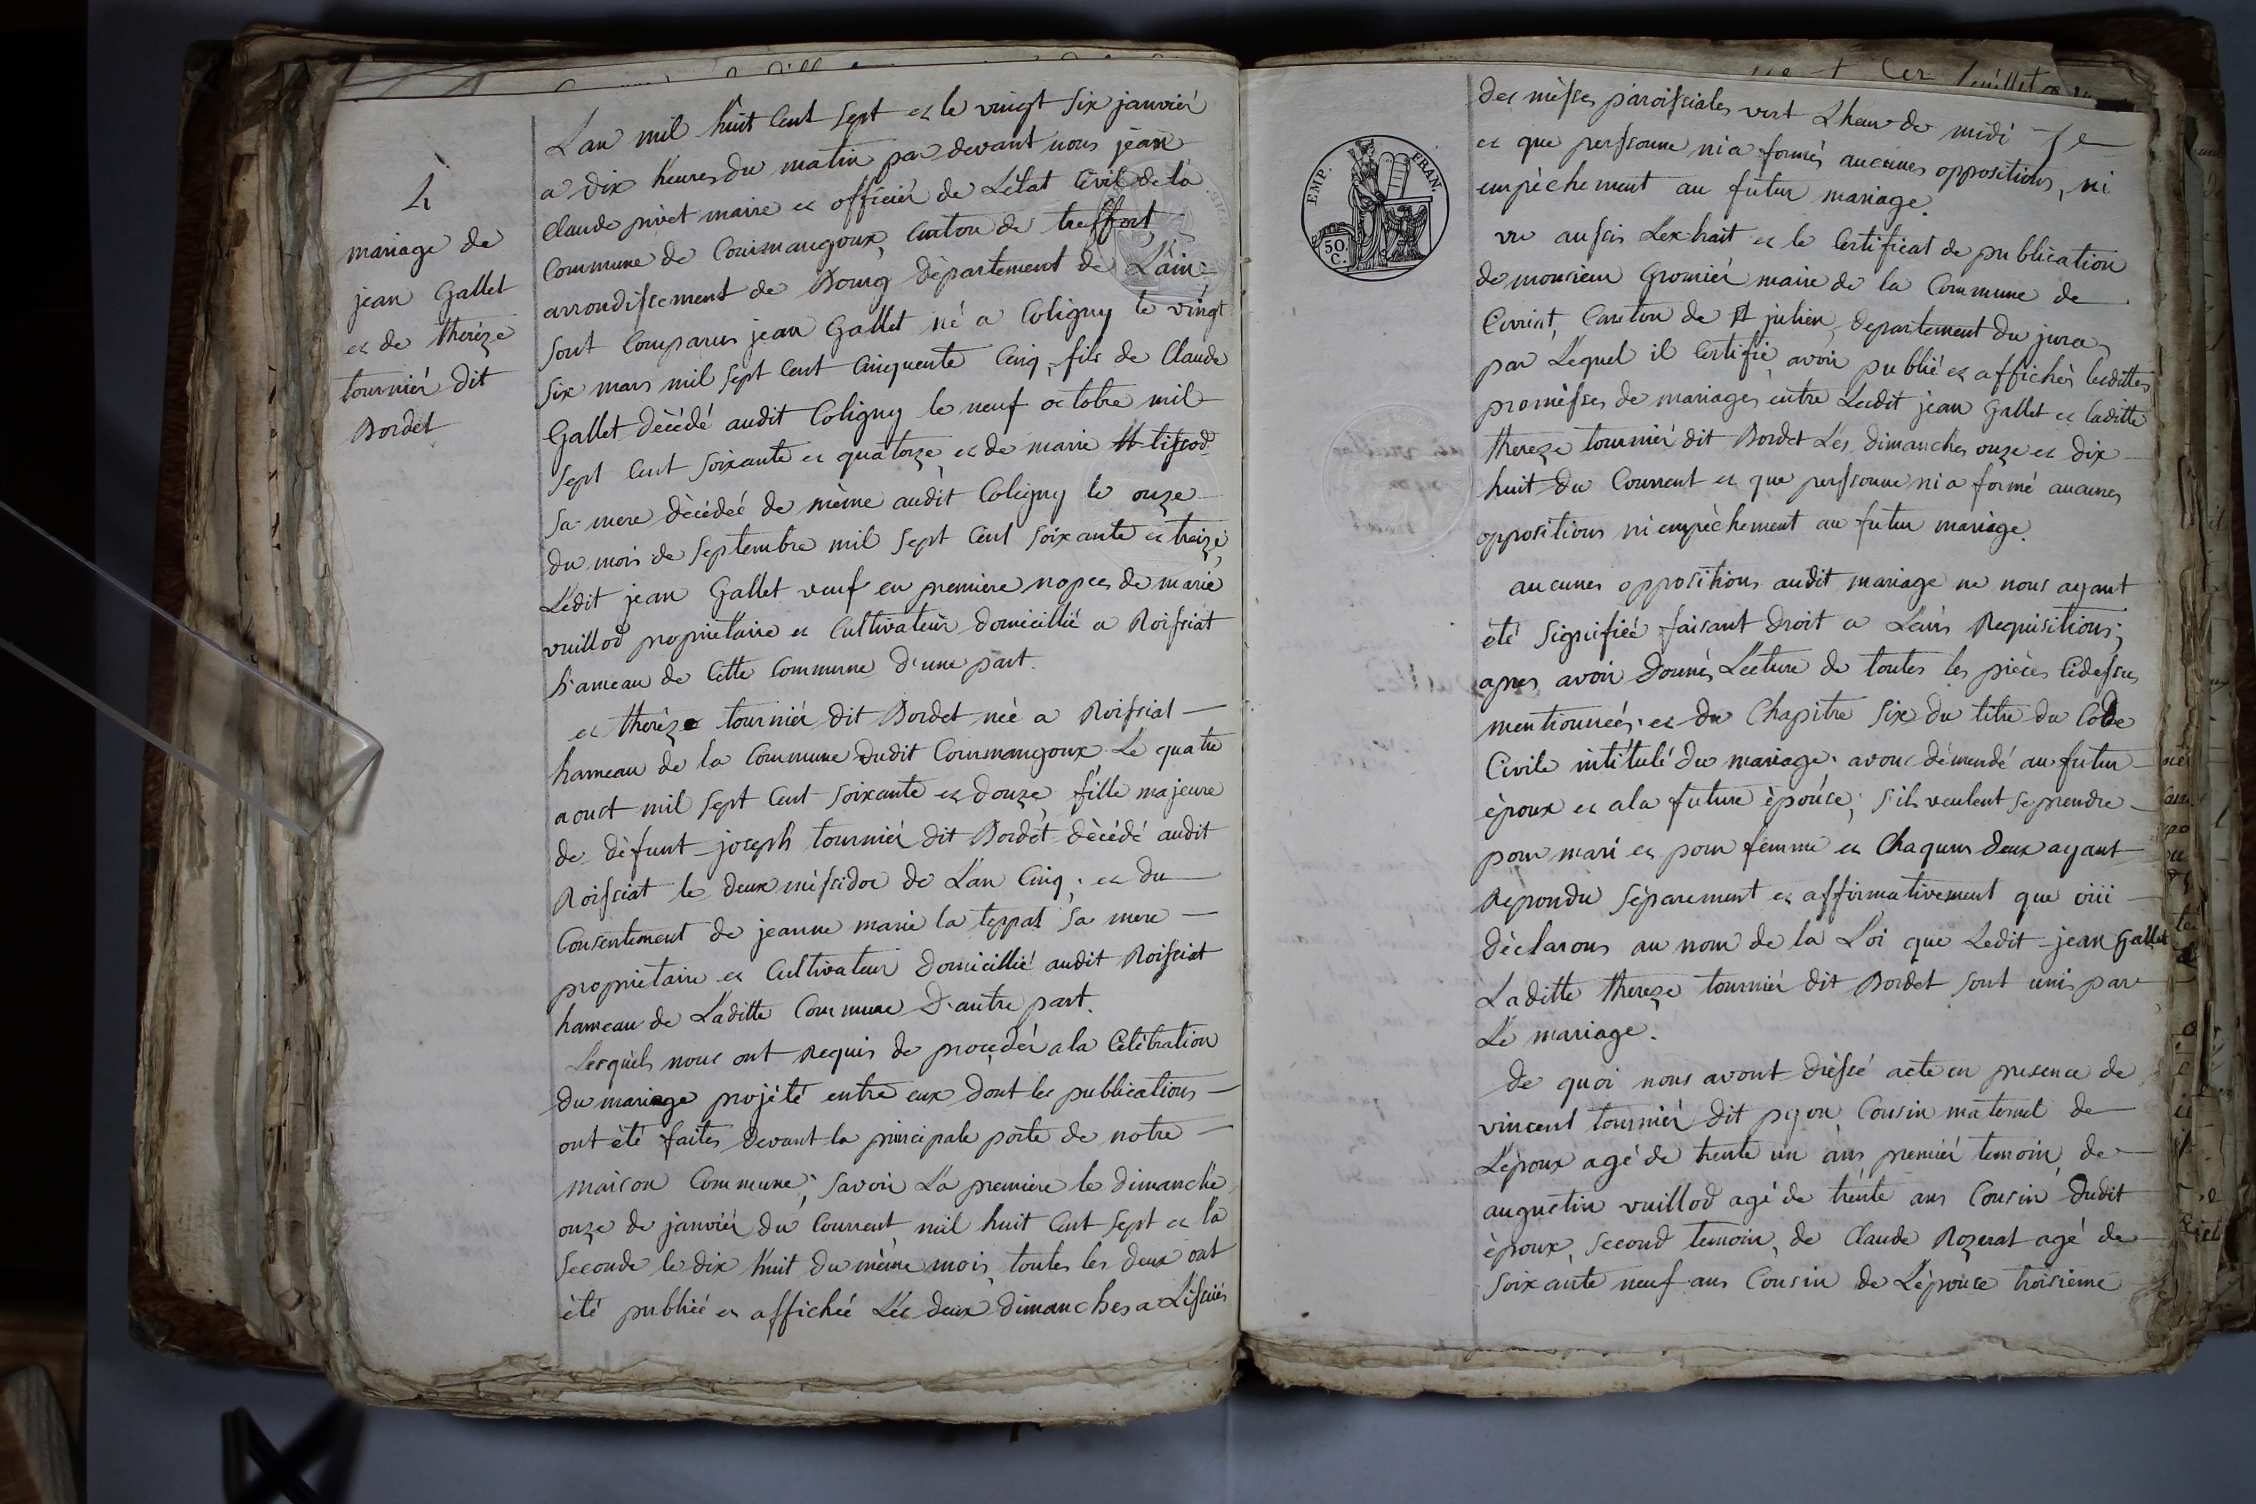 4
mariage de
jean Gallet
et de thereze
tournier dit
Bordet
L'an mil huit Cent sept et le vingt six janvier
a dix heures du matin par devant nous jean
Claude pivet maire et officier de L'état Civil de la
Commune de Courmangoux, Canton de treffort,
arrondissement de Bourg département de L'ain
sont Comparus jean Gallet né a Coligny le vingt
six mars mil sept Cent Cinquente Cinq, fils de Claude
Gallet décédé audit Coligny le neuf octobre mil
sept Cent soixante et quatorze, et de marie tissod
sa mere décédée de même audit Coligny le onze
du mois de septembre mil sept Cent soixante et treize,
Ledit jean Gallet veuf en premiere nopces de marie
vuillod proprietaire et Cultivateur domicillié a Roissiat
hameau de Cette Commune d'une part.
et therèze tournier dit Bordet née a Roissiat
hameau de la Commune dudit Courmangoux Le quatre
aoust mil sept Cent soixante et douze, fille majeure
de défunt joseph tournier dit Bordet décédé audit
Roissiat le deux messidor de L'an Cinq, et du
Consentement de jeanne marie la teppat sa mere
proprietaire et Cultivateur domicillié audit Roissiat
hameau de Laditte Commune D'autre part.
Lesquels nous ont Requis de procéder a la Célébration
du mariage projété entre eux dont les publications
ont été faites devant la principale porte de notre
maison Commune; savoir La première le dimanche
onze de janvier du Courrent mil huit Cent sept et la
seconde le dix huit du même mois, toutes les deux ont
été publiée et affichée Les deux dimanches a L'issuës
EMP. FRAN.
50.
C.
des mèsses paroissiales vert Lheur de midi
et que perssonne ni a formés aucunes oppositions, ni
empêchement au futur mariage.
vu aussis L'extrait et le Certificat de publication
de monsieur Gromier maire de la Commune de
Civriat, Canton de St julien, departement du jura,
par Lequel il Certifie avoir publié et affichés lesdittes
promèsses de mariages entre Ledit jean Gallet et laditte
thereze tournier dit Bordet Les dimanches onze et dix
huit du Courrent et que perssonne ni a formé aucunes
oppositions ni empêchement au futur mariage.
aucunes oppositions audit mariage ne nous ayant
été signifiée faisant droit a Leurs Requisitions;
apres avoir donnés Lecture de toutes les pièces Cidessus
mentionnées, et du Chapitre six du titre du Code
Civile intitulé du mariage. avons démendé au futur
époux et a la future épouse; s'ils veulent se prendre
pour mari et pour femme et Chaquns deux ayant
Repondu séparement et affirmativement que oüi
déclarons au nom de la Loi que Ledit jean Gallet
Laditte thereze tournier dit Bordet sont unis par
Le mariage.
de quoi nous avont drèssé acte en presence de
vincent tournier dit pyon Cousin maternel de
L'époux agé de trente un ans, premier temoin, de
augustin vuillod agé de trente ans Cousin dudit
époux, second temoin, de Claude Rozerat agé de
soixante neuf ans Cousin de L'épouse troisieme